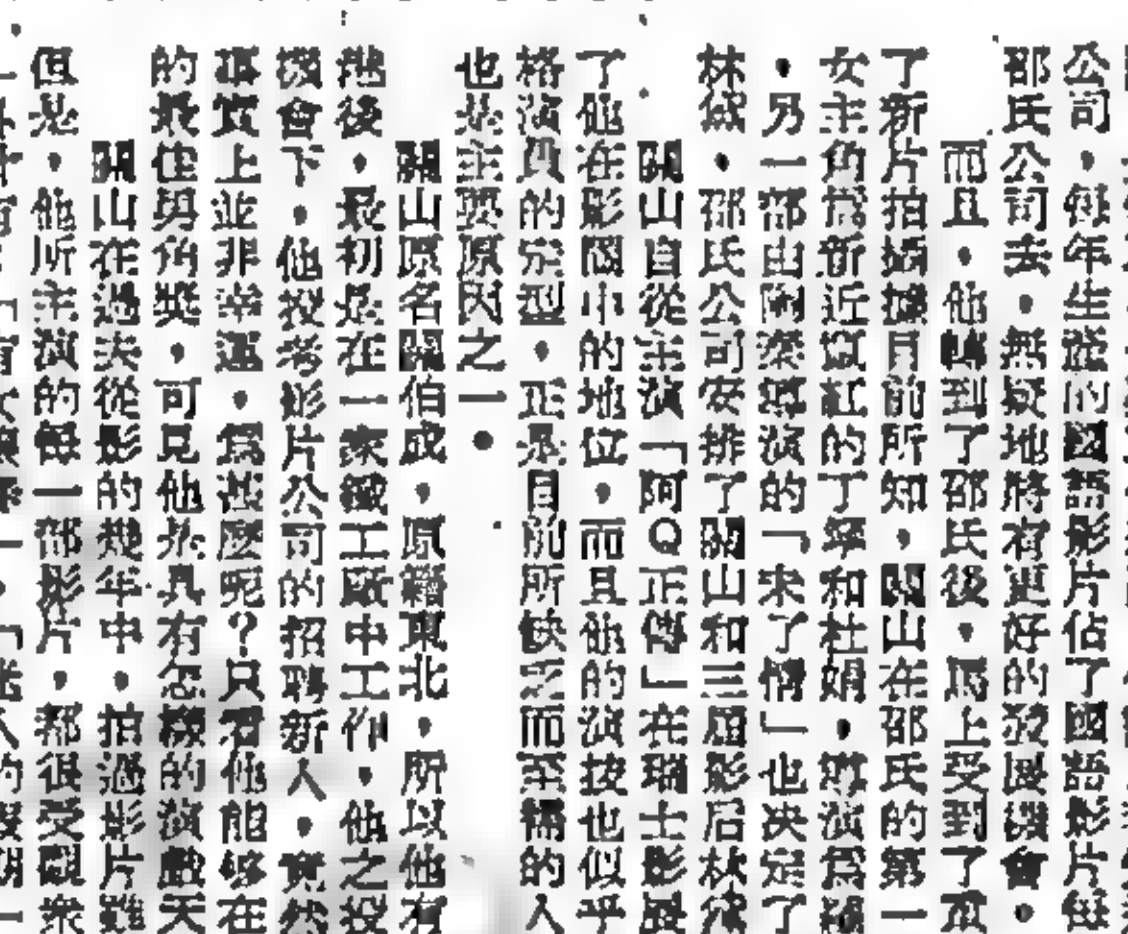 公司，每年生產的國語影片佔了國語影片每
邵氏公司去。無疑地將有更好的發展機會。
而且，他轉到了邵氏後，馬上受到了重
了新片拍攝據目前所知，關山在邵氏的第一
女主角為新近竄紅的丁寧和杜娟，導演為
，另一部由陶秦導演的「未了情」也決定了
林黛，邵氏公司安排了關山和三屆影后林黛
關山自從主演「阿Q正傳」在瑞士影展
了他在影圈中的地位，而且他的演技也似乎
格演員的定型，正是目前所缺乏而至需的人
也是主要原因之一。
關山原名關伯成，原籍東北，所以他有
港後，最初是在一家織工廠中工作，他之投
機會下，他投考影片公司的招聘新人，竟然
事實上並非幸運，為甚麼呢？只看他能夠在
的最佳男角獎，可見他是具有怎樣的演戲天
關山在過去從影的幾年中，拍過影片雖
但是，他所主演的每一部影片，都很受觀眾